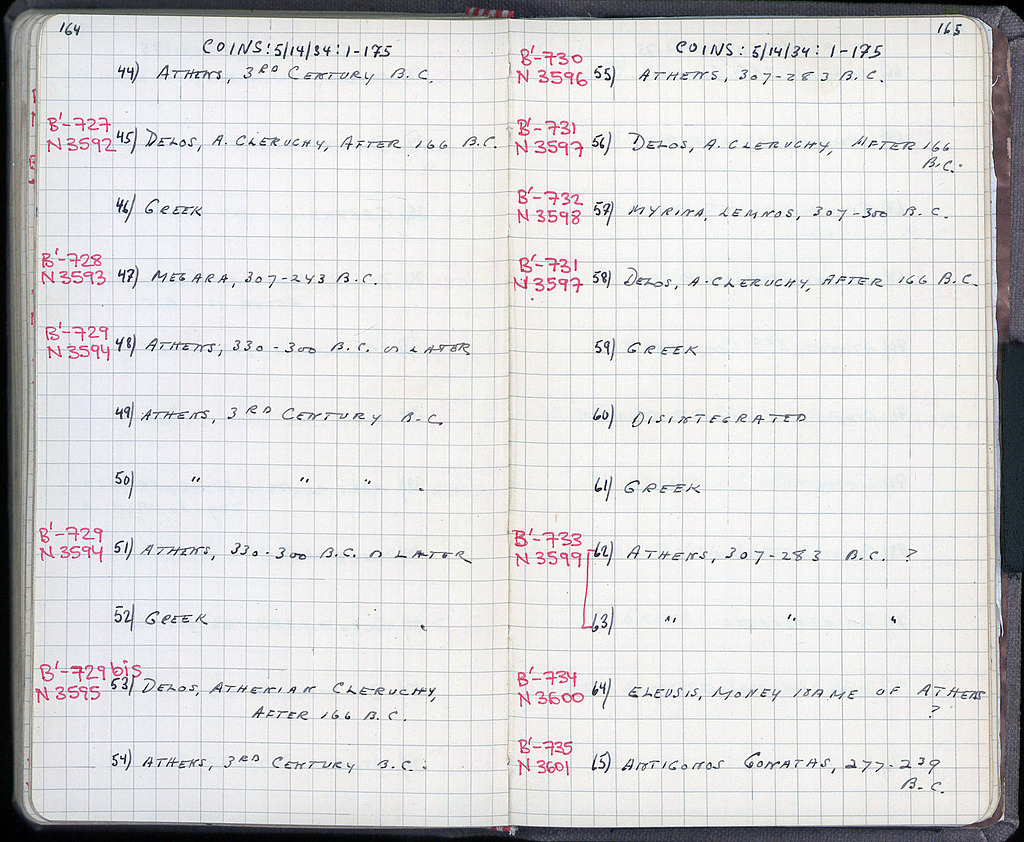 164
COINS: 5/14/34: 1-175
44) ATHENS, 3RD CENTURY B.C.
B'-727
N 3592 45) DELOS, A. CLERUCHY, AFTER 166 B.C.
46) GREEK
B'-728
N 3593 47) MEGARA, 307-243 B.C.
B'-729
N 3594 48) ATHENS, 330-300 B.C. OR LATER
49) ATHENS, 3RD CENTURY B.C.
50) " " " .
B'-729
N 3594 51) ATHENS, 330-300 B.C. OR LATER
52) GREEK .
B'-729 bis
N 3595 53) DELOS, ATHENIAN CLERUCHY,
AFTER 166 B.C.
54) ATHENS, 3RD CENTURY B.C.
165
COINS: 5/14/34: 1-175
B'-730
N 3596 55) ATHENS, 307-283 B.C.
B'-731
N 3597 56) DELOS, A. CLERUCHY, AFTER 166
B.C.
B'-732
N 3598 57) MYRINA, LEMNOS, 307-300 B.C.
B'-731
N 3597 58) DELOS, A. CLERUCHY, AFTER 166 B.C.
59) GREEK
60) DISINTEGRATED
61) GREEK
B'-733
N 3599 62) ATHENS, 307-283 B.C. ?
63) " " "
B'-734
N 3600 64) ELEUSIS, MONEY NAME OF ATHENS
?
B'-735
N 3601 65) ANTIGONOS GONATAS, 277-239
B.C.